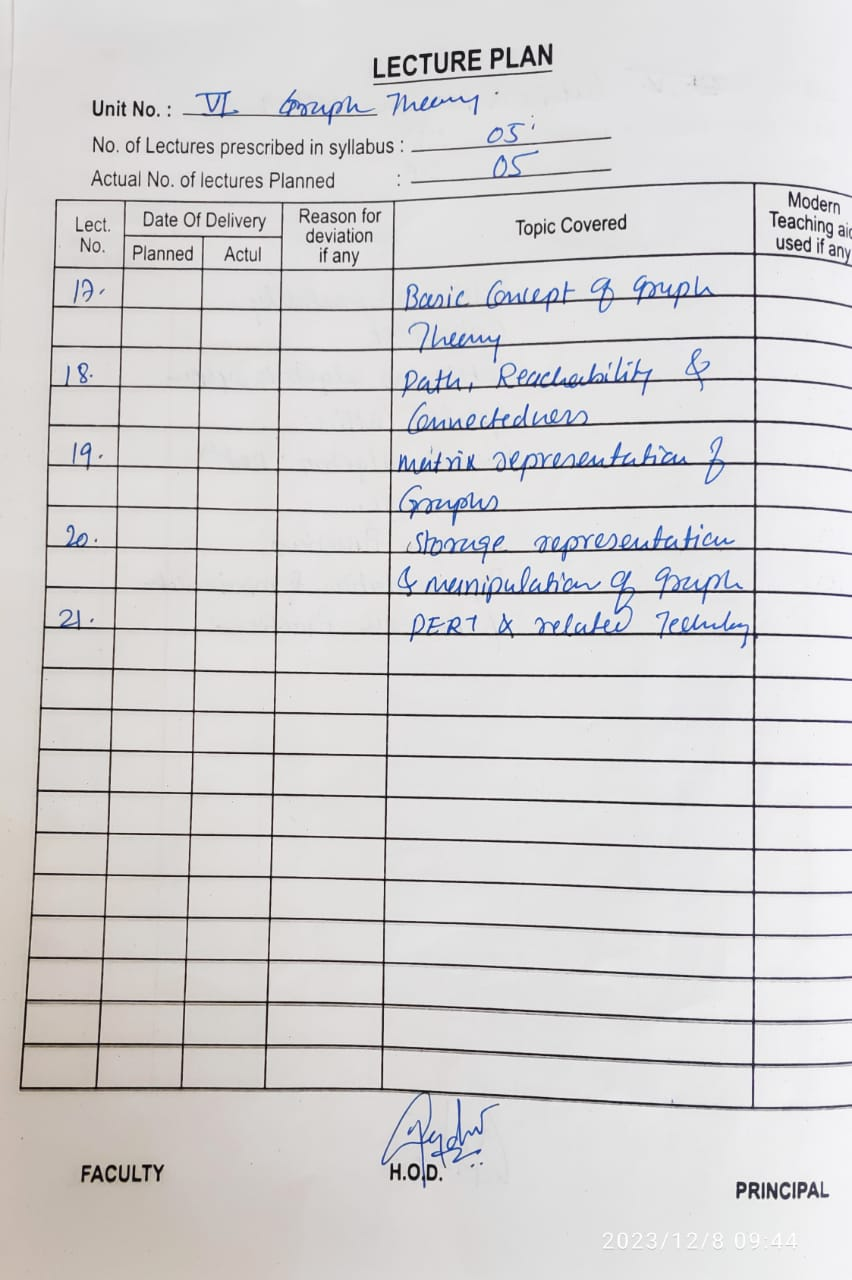 LECTURE PLAN
Unit No. : VI Graph Theory.
No. of Lectures prescribed in syllabus : 05
Actual No. of lectures Planned : 05
Lect. No.
Date Of Delivery
Planned
Actul
Reason for deviation if any
Topic Covered
Modern Teaching aid used if any
17. Basic Concept of Graph
Theory
18. Path, Reachability &
Connectedness
19. Matrix representation of
Graphs
20. Storage representation
& manipulation of Graph
21. PERT & related
FACULTY
H.O.D.
PRINCIPAL
2023/12/8 09:44